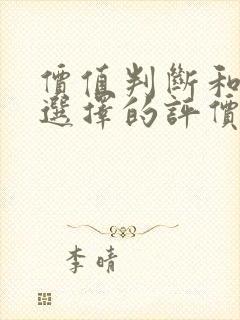 價值判斷和
選擇的評價
李晴